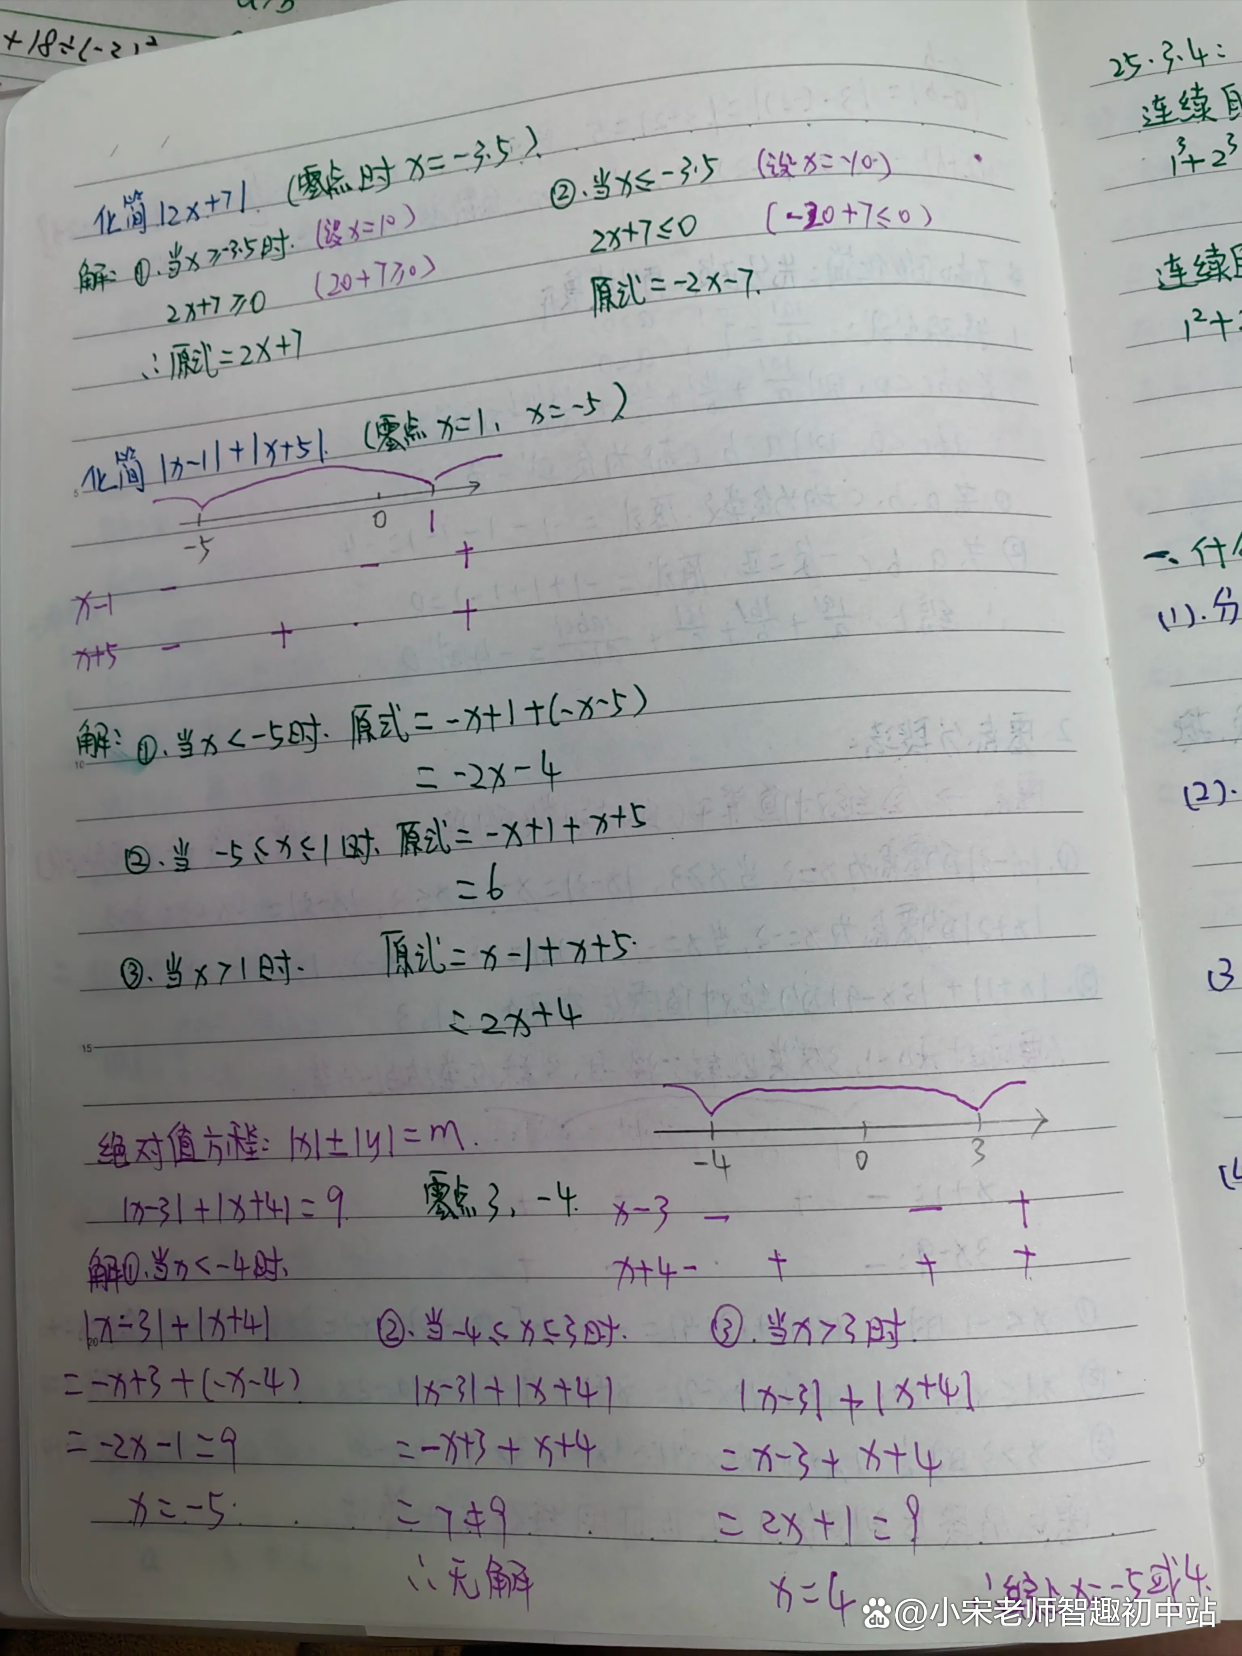 +18÷(-3)²
化简|2x+7| (零点时 x=-3.5)
解: ①.当x≥-3.5时. (设x=10)
2x+7≥0 (20+7≥0)
∴原式=2x+7
②.当x≤-3.5 (设x=-10)
2x+7≤0 (-20+7≤0)
原式=-2x-7.
化简|x-1|+|x+5|. (零点x=1, x=-5)
-5 0 1
x-1 - - +
x+5 - + +
解: ①.当x<-5时. 原式=-x+1+(-x-5)
=-2x-4
②.当 -5≤x≤1时. 原式=-x+1+x+5
=6
③.当x>1时. 原式=x-1+x+5.
=2x+4
绝对值方程: |x|±|y|=m.
-4 0 3
|x-3|+|x+4|=9 零点3, -4.
x-3 - - +
x+4 - + + +
解①.当x<-4时.
|x-3|+|x+4|
=-x+3+(-x-4)
=-2x-1=9
x=-5.
②.当-4≤x≤3时.
|x-3|+|x+4|
=-x+3+x+4
=7≠9
∴无解
③.当x>3时.
|x-3|+|x+4|
=x-3+x+4
=2x+1=9
x=4
x=-5或4.
25.3.4:
连续
1³+2³
连续
1²+
一、什
(1).分
(2).
(3
(4
5
10
15
@小宋老师智趣初中站